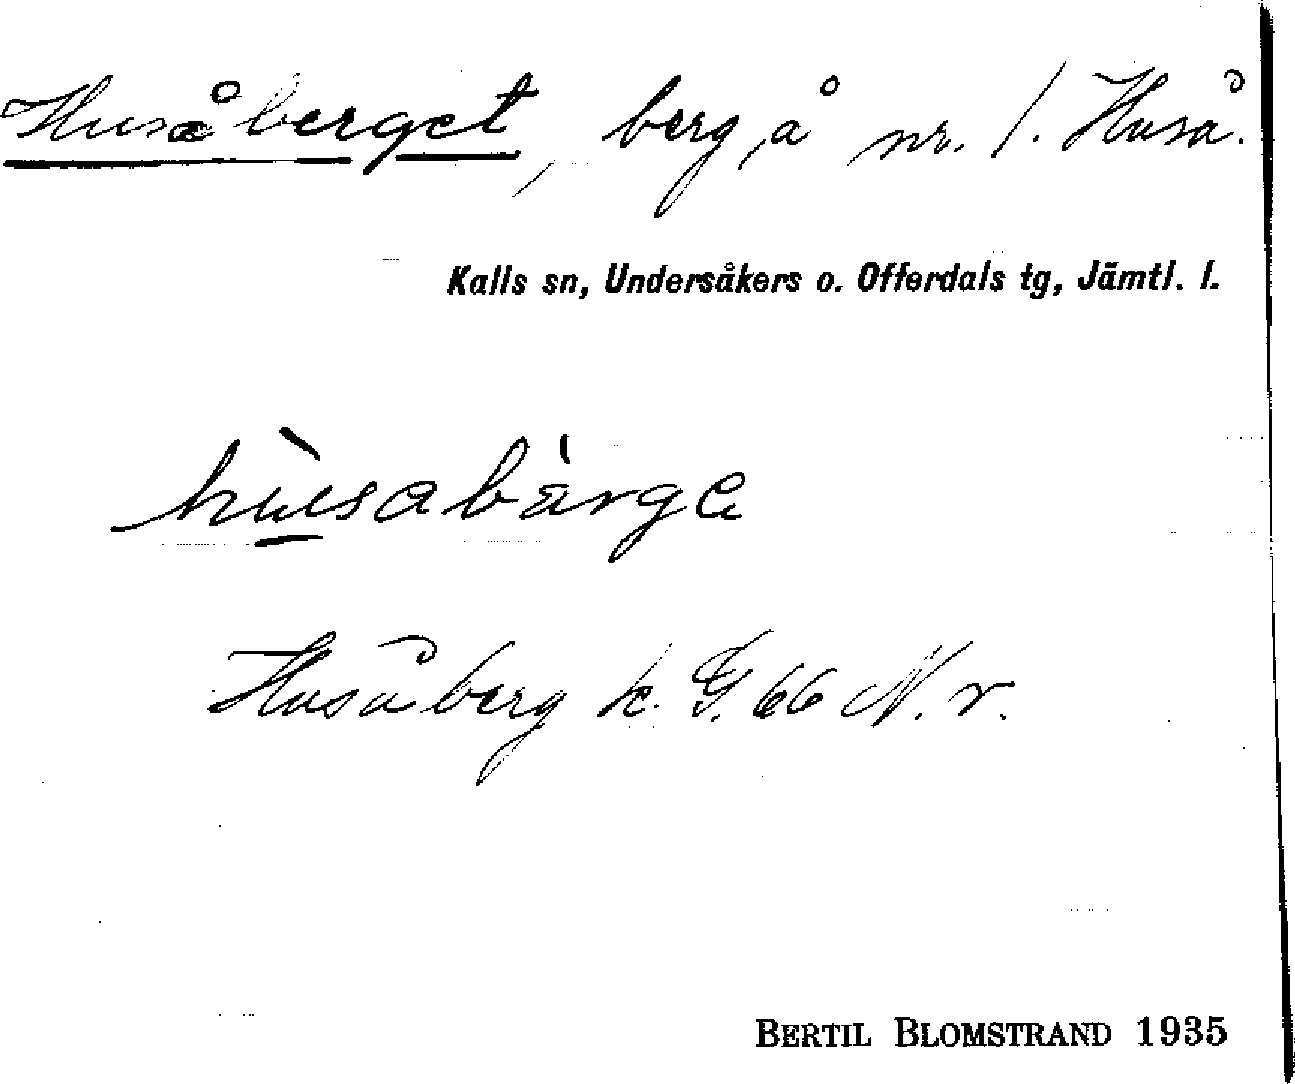 Husåberget, berg, å nr. 1. Huså.
Kalls sn, Undersåkers o. Offerdals tg, Jämtl. l.
hùsabárge
Husåberg k. G. 66 N. v.
BERTIL BLOMSTRAND 1935